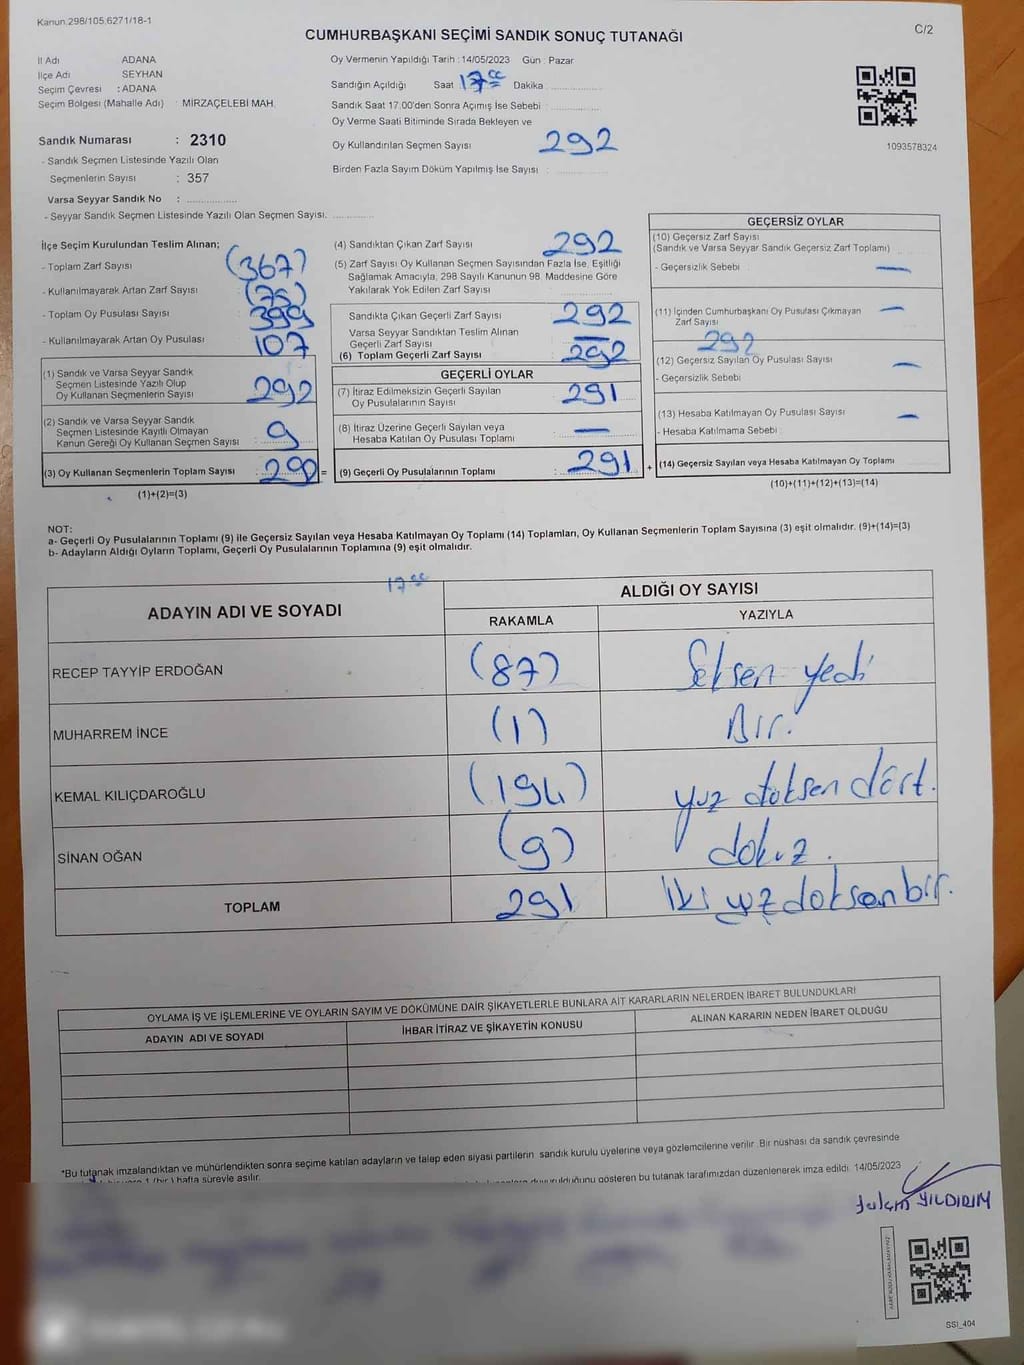 Kanun.298/105,6271/18-1
C/2
CUMHURBAŞKANI SEÇİMİ SANDIK SONUÇ TUTANAĞI
İl Adı ADANA
İlçe Adı SEYHAN
Seçim Çevresi : ADANA
Seçim Bölgesi (Mahalle Adı) : MİRZAÇELEBİ MAH.
Oy Vermenin Yapıldığı Tarih : 14/05/2023 Gün : Pazar
Sandığın Açıldığı Saat 17 Dakika
Sandık Saat 17.00'den Sonra Açımış İse Sebebi :
Oy Verme Saati Bitiminde Sırada Bekleyen ve
Oy Kullandırılan Seçmen Sayısı 292
Birden Fazla Sayım Döküm Yapılmış İse Sayısı :
1093578324
Sandık Numarası : 2310
- Sandık Seçmen Listesinde Yazılı Olan
Seçmenlerin Sayısı : 357
Varsa Seyyar Sandık No :
- Seyyar Sandık Seçmen Listesinde Yazılı Olan Seçmen Sayısı.
İlçe Seçim Kurulundan Teslim Alınan;
- Toplam Zarf Sayısı (367)
- Kullanılmayarak Artan Zarf Sayısı (75)
- Toplam Oy Pusulası Sayısı : 399
- Kullanılmayarak Artan Oy Pusulası : 107
(1) Sandık ve Varsa Seyyar Sandık
Seçmen Listesinde Yazılı Olup
Oy Kullanan Seçmenlerin Sayısı : 292
(2) Sandık ve Varsa Seyyar Sandık
Seçmen Listesinde Kayıtlı Olmayan
Kanun Gereği Oy Kullanan Seçmen Sayısı : 9
(3) Oy Kullanan Seçmenlerin Toplam Sayısı =
(1)+(2)=(3)
(4) Sandıktan Çıkan Zarf Sayısı 292
(5) Zarf Sayısı Oy Kullanan Seçmen Sayısından Fazla İse, Eşitliği
Sağlamak Amacıyla, 298 Sayılı Kanunun 98. Maddesine Göre
Yakılarak Yok Edilen Zarf Sayısı
Sandıkta Çıkan Geçerli Zarf Sayısı 292
Varsa Seyyar Sandıktan Teslim Alınan
Geçerli Zarf Sayısı : —
(6) Toplam Geçerli Zarf Sayısı : 292
GEÇERLİ OYLAR
(7) İtiraz Edilmeksizin Geçerli Sayılan
Oy Pusulalarının Sayısı : 291
(8) İtiraz Üzerine Geçerli Sayılan veya
Hesaba Katılan Oy Pusulası Toplamı : —
(9) Geçerli Oy Pusulalarının Toplamı : 291 +
GEÇERSİZ OYLAR
(10) Geçersiz Zarf Sayısı
(Sandık ve Varsa Seyyar Sandık Geçersiz Zarf Toplamı)
- Geçersizlik Sebebi —
(11) İçinden Cumhurbaşkanı Oy Pusulası Çıkmayan
Zarf Sayısı —
292
(12) Geçersiz Sayılan Oy Pusulası Sayısı —
- Geçersizlik Sebebi
(13) Hesaba Katılmayan Oy Pusulası Sayısı —
- Hesaba Katılmama Sebebi :
(14) Geçersiz Sayılan veya Hesaba Katılmayan Oy Toplamı
(10)+(11)+(12)+(13)=(14)
NOT:
a- Geçerli Oy Pusulalarının Toplamı (9) ile Geçersiz Sayılan veya Hesaba Katılmayan Oy Toplamı (14) Toplamları, Oy Kullanan Seçmenlerin Toplam Sayısına (3) eşit olmalıdır. (9)+(14)=(3)
b- Adayların Aldığı Oyların Toplamı, Geçerli Oy Pusulalarının Toplamına (9) eşit olmalıdır.
17
ADAYIN ADI VE SOYADI ALDIĞI OY SAYISI
RAKAMLA YAZIYLA
RECEP TAYYİP ERDOĞAN (87) Seksen yedi
MUHARREM İNCE (1) Bir.
KEMAL KILIÇDAROĞLU (194) yuz doksen dört.
SİNAN OĞAN (9) dokuz.
TOPLAM 291 İki yüz doksan bir.
OYLAMA İŞ VE İŞLEMLERİNE VE OYLARIN SAYIM VE DÖKÜMÜNE DAİR ŞİKAYETLERLE BUNLARA AİT KARARLARIN NELERDEN İBARET BULUNDUKLARI
ADAYIN ADI VE SOYADI İHBAR İTİRAZ VE ŞİKAYETİN KONUSU ALINAN KARARIN NEDEN İBARET OLDUĞU
*Bu tutanak imzalandıktan ve mühürlendikten sonra seçime katılan adayların ve talep eden siyasi partilerin sandık kurulu üyelerine veya gözlemcilerine verilir. Bir nüshası da sandık çevresinde
1 (bir) hafta süreyle asılır. duyurulduğunu gösteren bu tutanak tarafımızdan düzenlenerek imza edildi. 14/05/2023
YILDIRIM
SSI_404